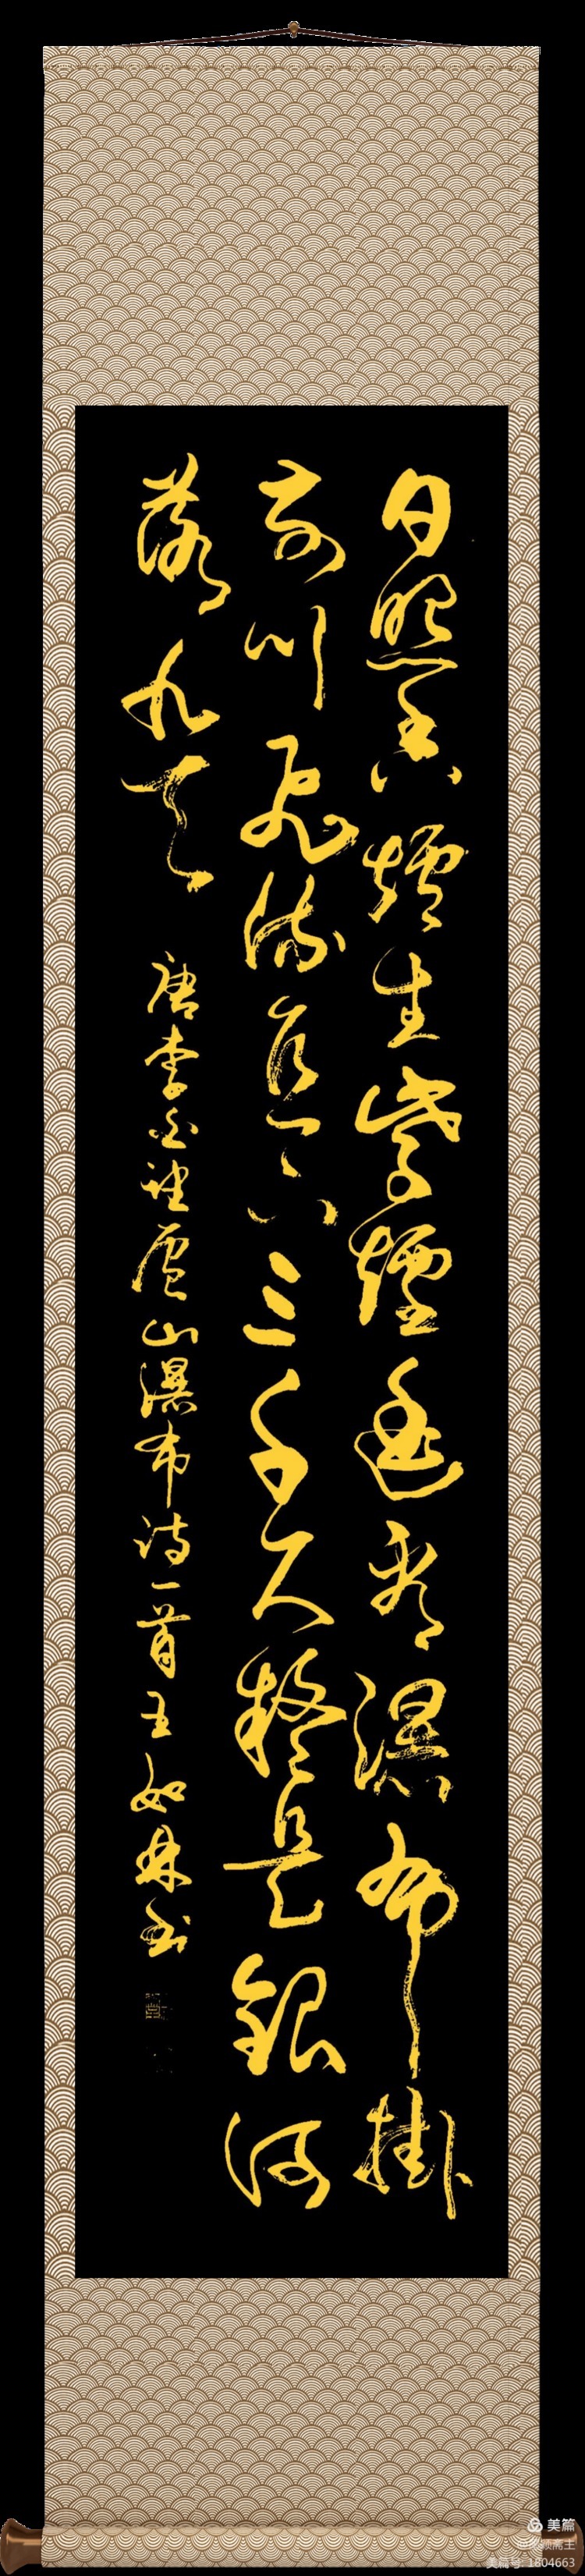 日照香爐生紫煙遙看瀑布掛
前川飛流直下三千尺疑是銀河
落九天
唐李白望廬山瀑布詩一首王如林书
美篇
美篇号: 1804663